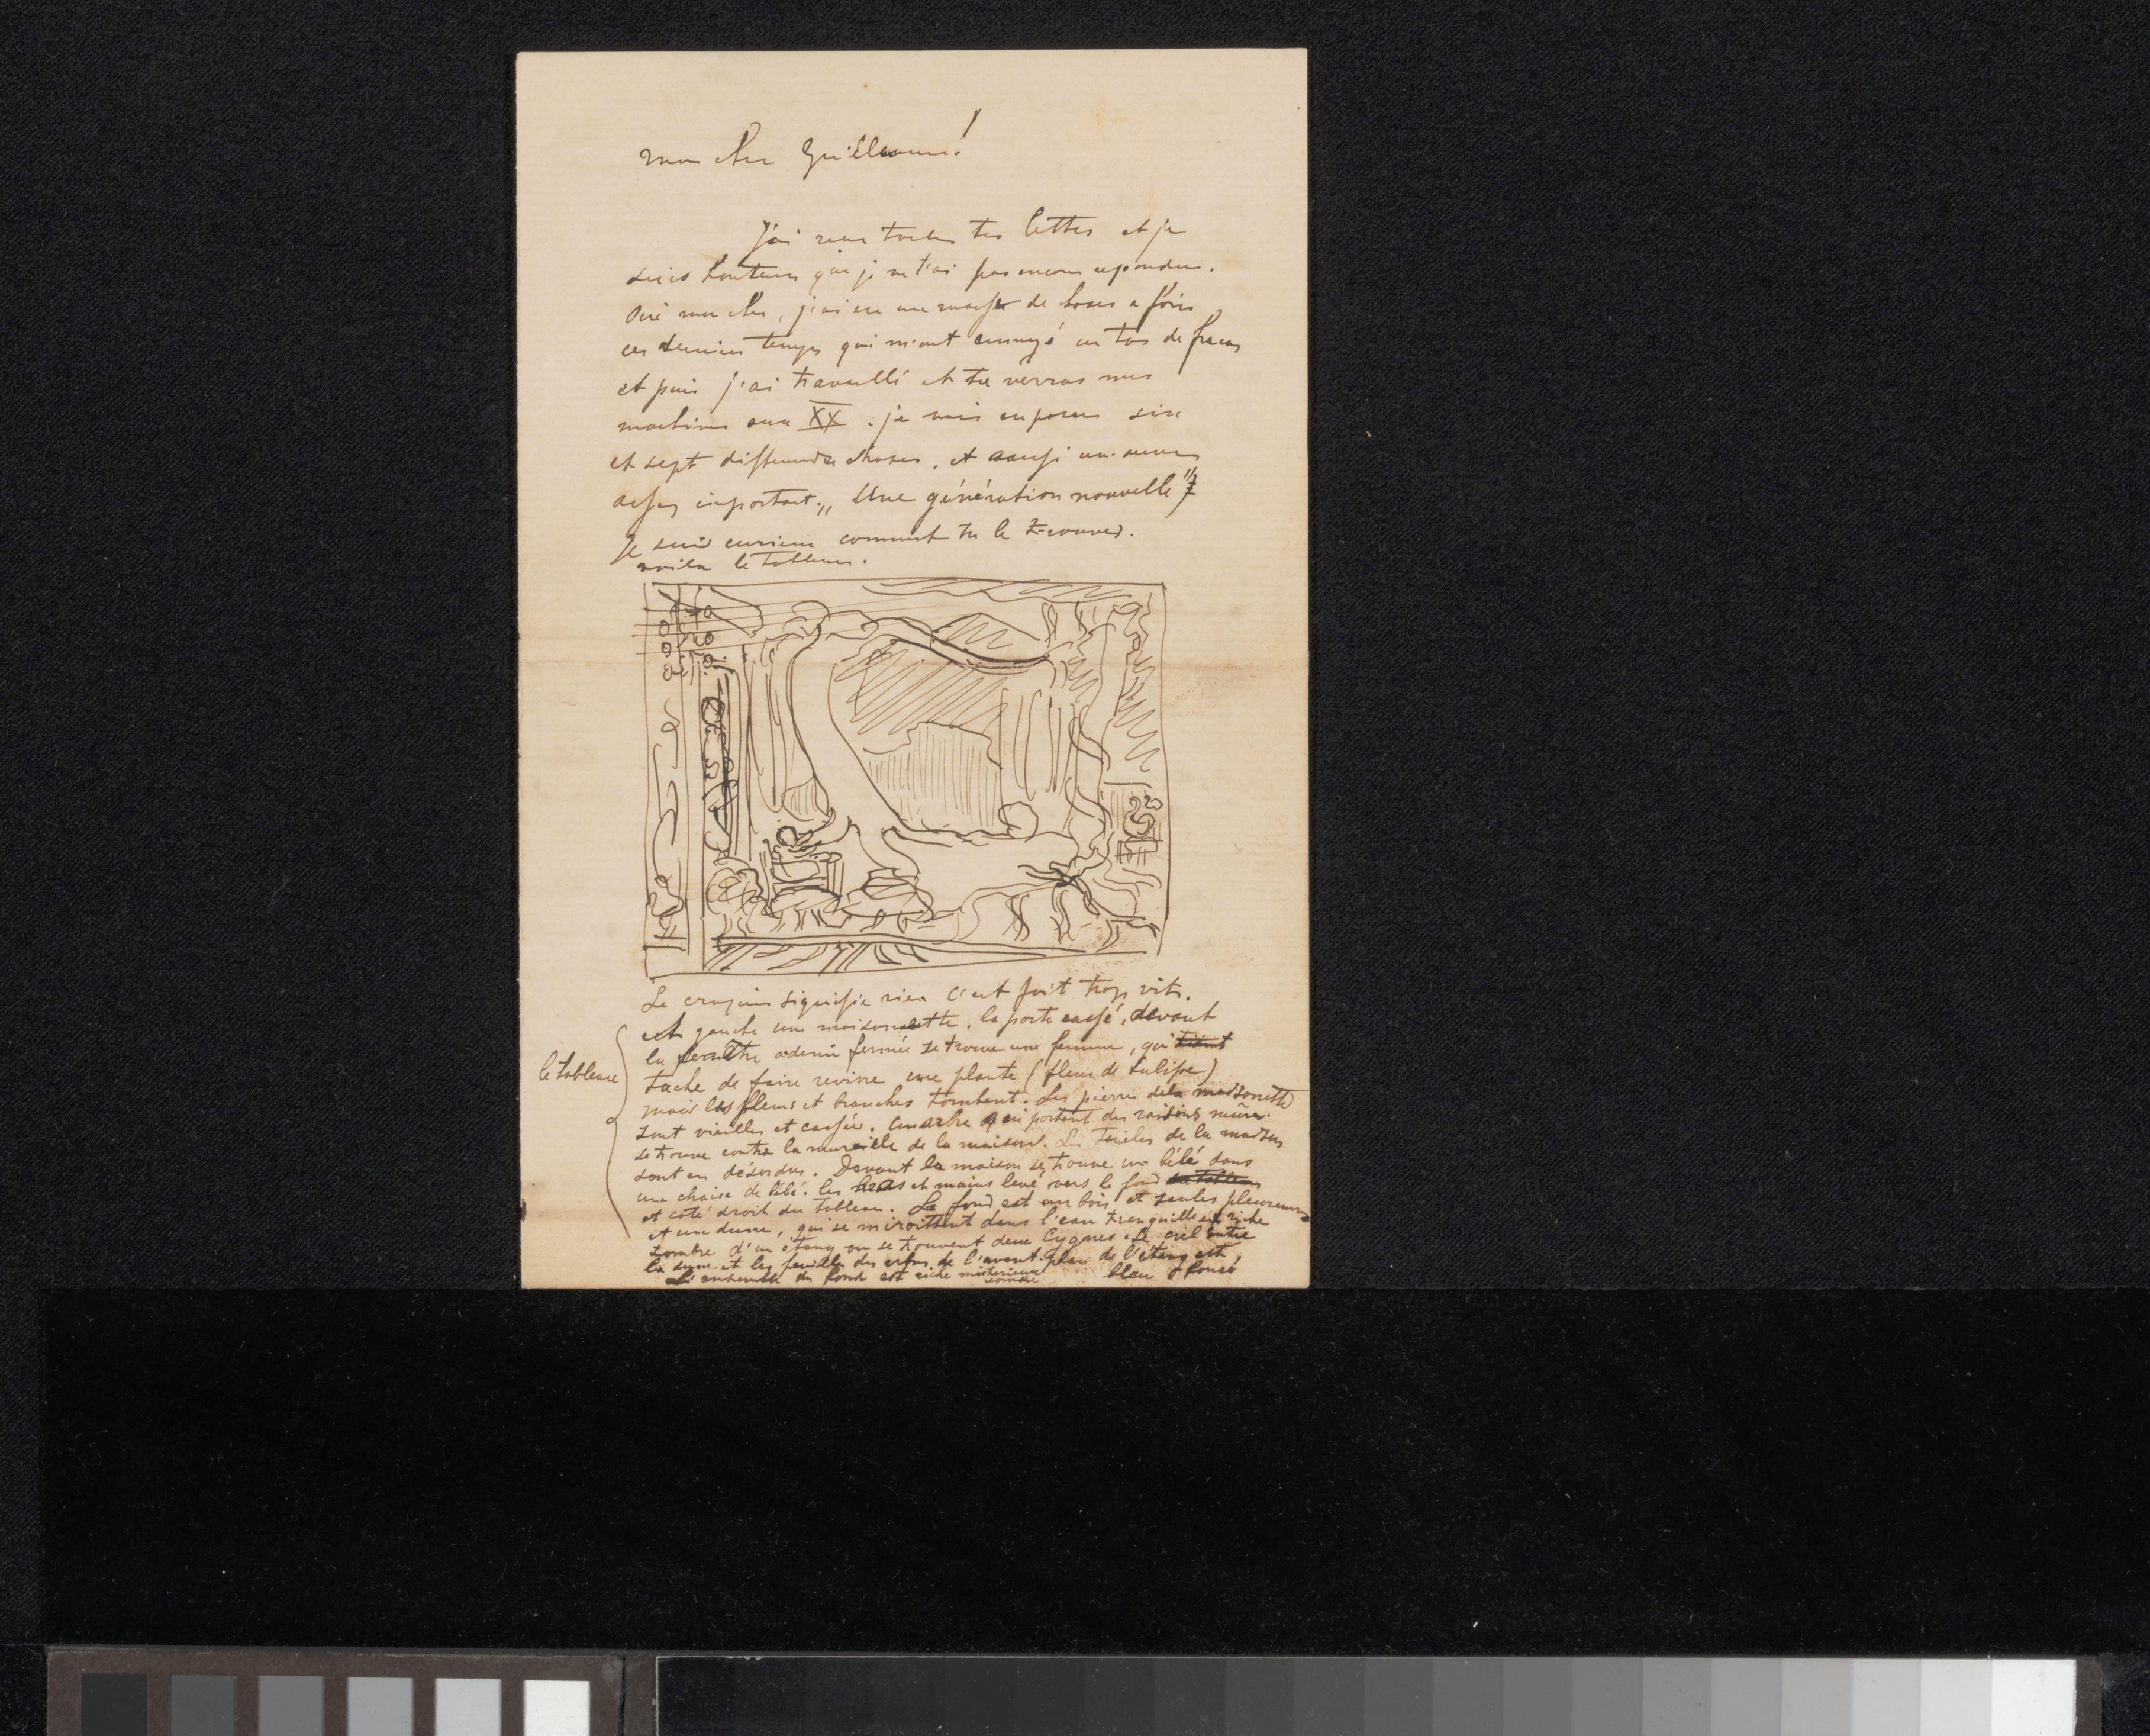 mon cher Guillaume!
J'ai recu toutes tes lettres et je
suis honteux que je ne t'ai pas encore repondu.
Oui mon cher, j'ai eu une masse de choses a fois
ces derniers temps qui m'ont ennuyé un tas de fracas
et puis j'ai travaillé et tu verras mes
machines aux XX. je vais exposer six
et sept differentes choses, et aussi un œuvre
assez important „Une génération nouvelle"
Je suis curieux comment tu le trouves.
voila le tableau.
Le croquis signifie rien c'est fait trop vite.
et gauche une maisonnette, la porte cassé, devant
la fenêtre a demi fermée se trouve une femme, qui tient
le tableau
tache de faire revivre une plante (fleur de tulipe)
mais les fleurs et branches tombent. Les pierres de la maisonnette
sont vieilles et cassées. Un arbre qui portent des raisins mûrs.
se trouve contre la muraille de la maison. Les tuiles de la maison
sont en désordre. Devant la maison se trouve un bébé dans
une chaise de bébé. les bras et mains levé vers le fond du tableau
et coté droit du tableau. Le fond est un bois et saules pleureurs
et une dune, qui se miroittent dans l'eau tranquille et riche
sombre d'un étang ou se trouvent deux Cygnes. Le ciel entre
la dune et les feuilles des arbres de l'avant-plan de l'étang est
bleu foncé
L'ensemble du fond est riche misterieux
sombre